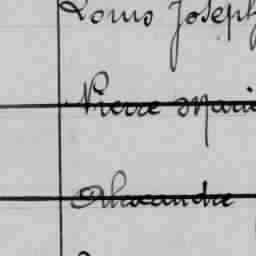 Louis Joseph
Pierre Marie
Alexandre